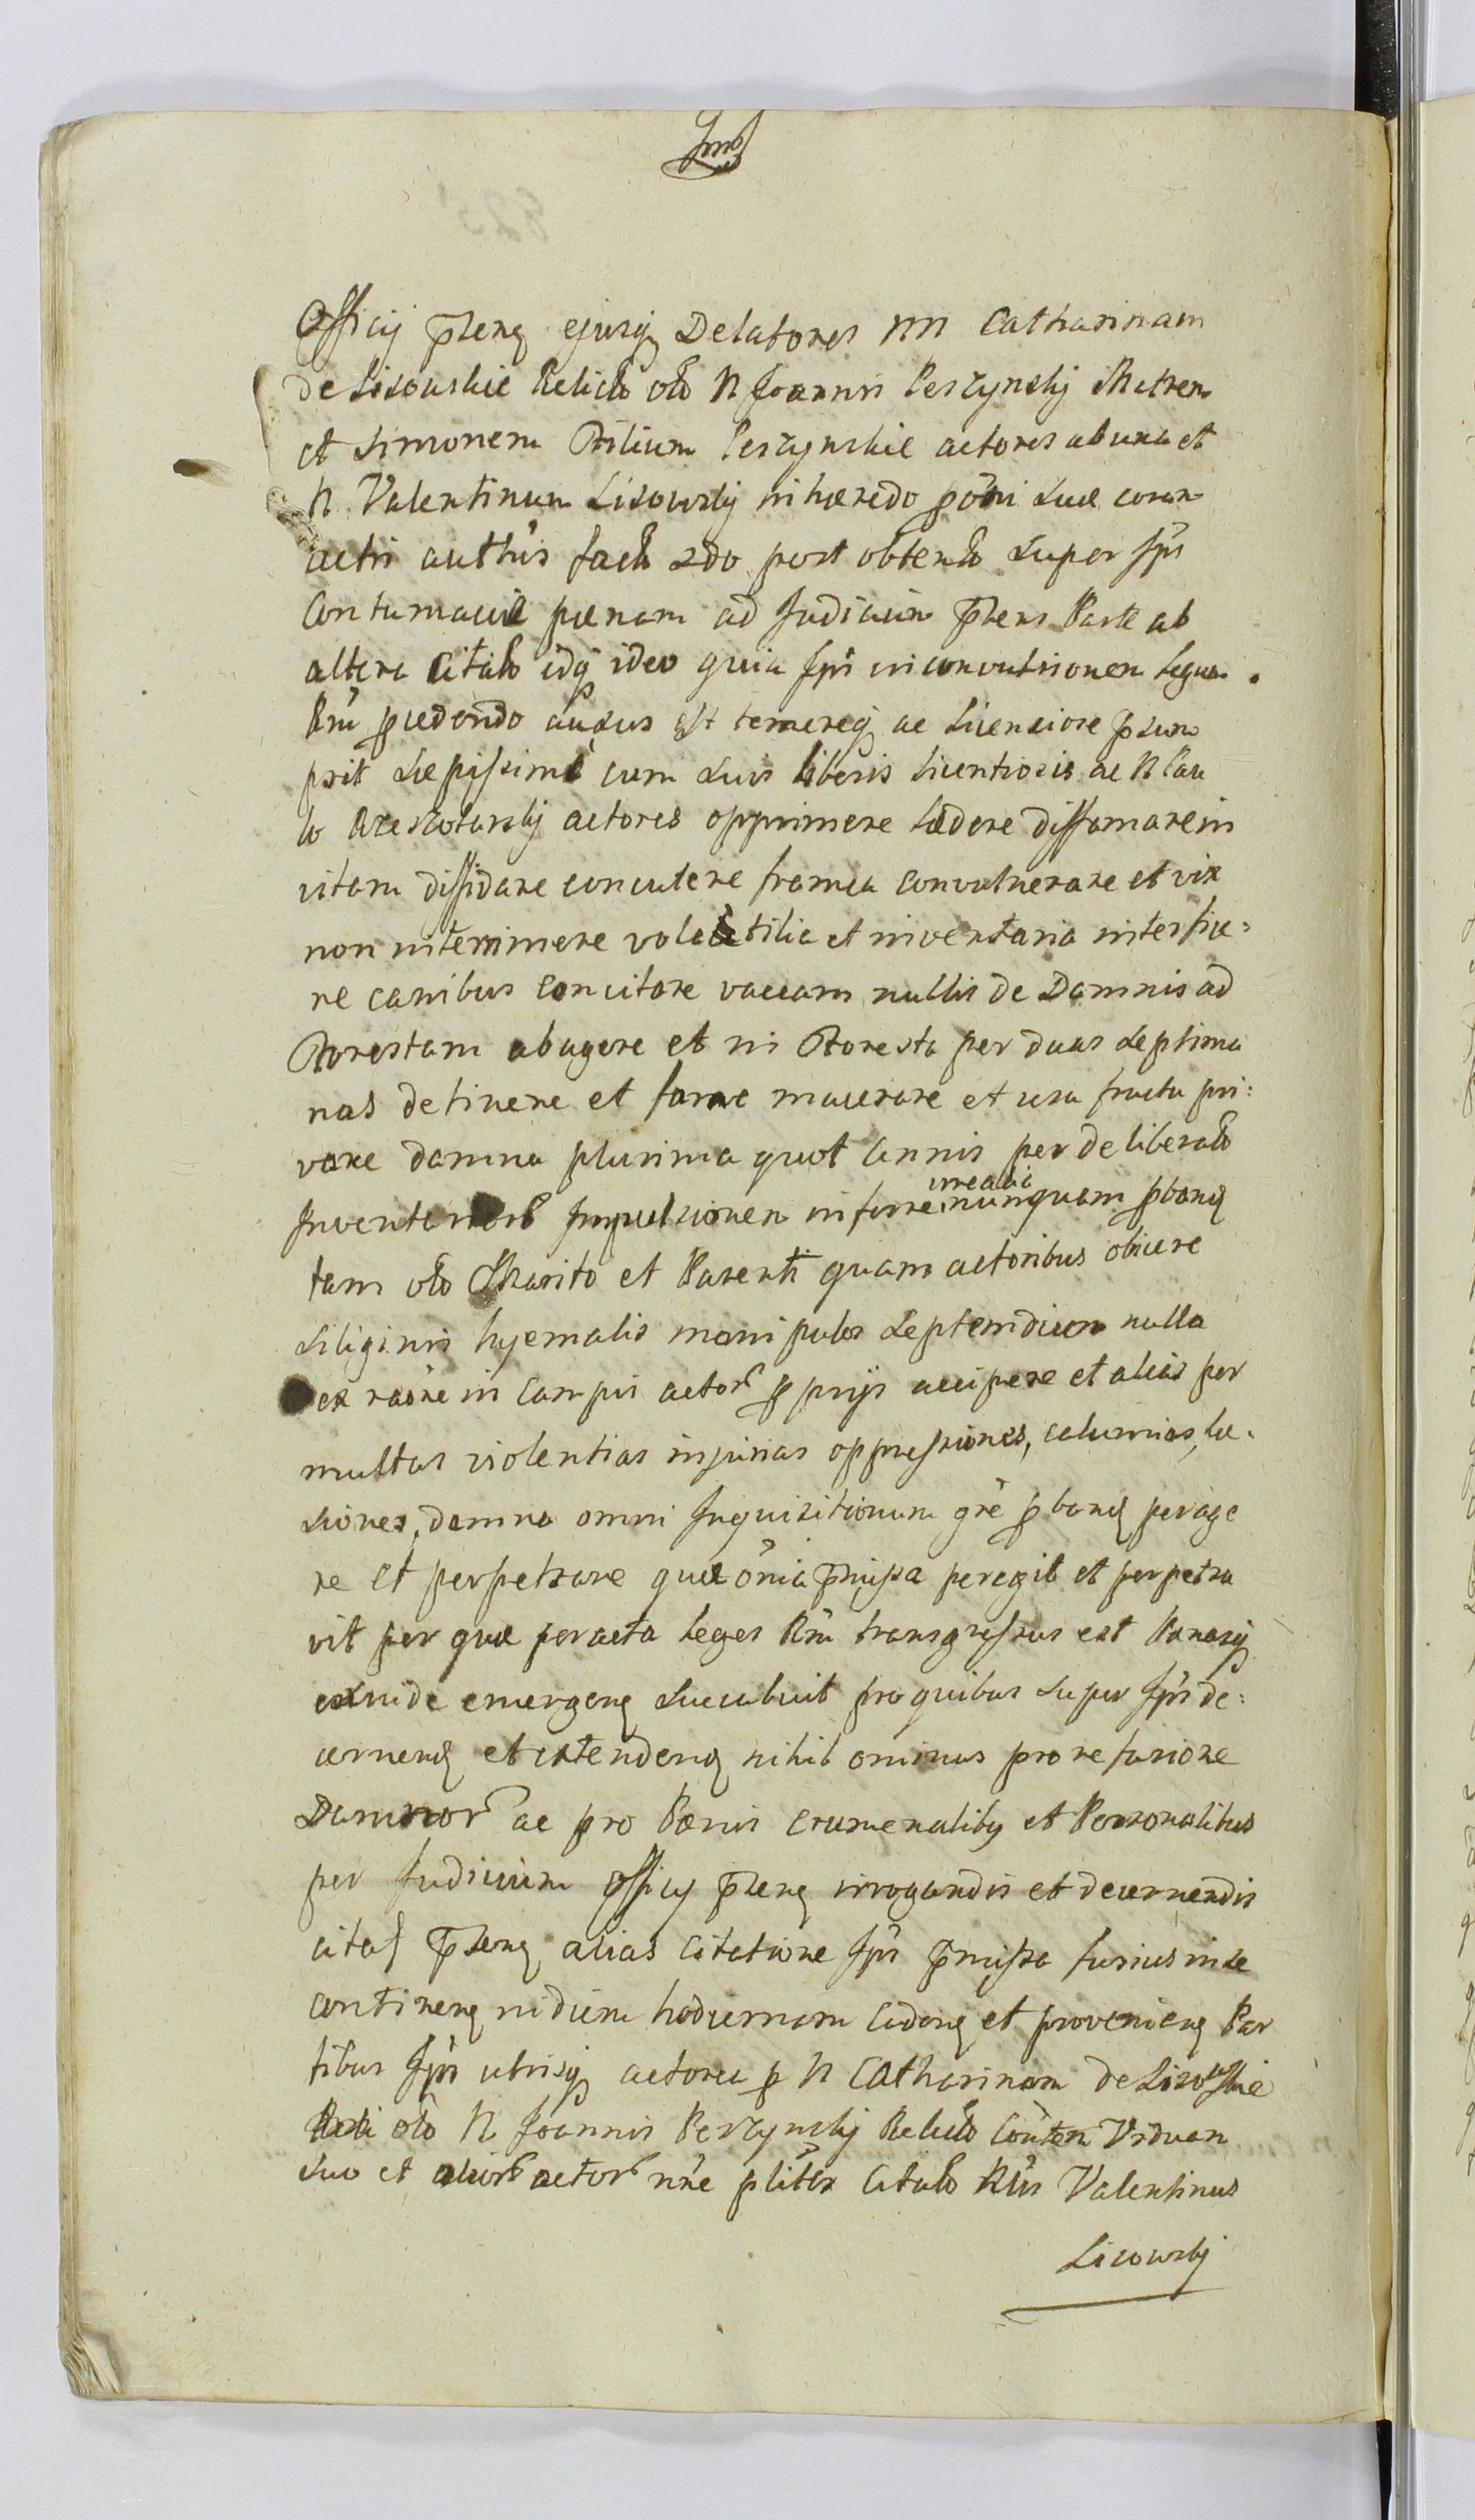 Officij pñeng ejusq Delatores nn Catharinam
de Lisowskie Relictã olõ N Joannis Perzynskij Matrem
et Simonem Filium Perzynskie actores ab una et
N Valentinum Lisowskij in hæredo põni suæ coram
actis authûs factã 2do post obtentã super Jps
Contumaciæ pænam ad Judicium pñens Parte ab
altera Citatõ idq ideo quia Jps in convulsionem legum
Rñi prædendo ausus est temereq ac licensiose p̃sum
psit sæpissimè cum suis liberis licentiosis ac N Pau
lo actores opprimere lædere diffamare in
vitam diffidare concutere framea convulnerare et vix
non interimere volatilia et inventaria interfice:
re canibus concitare vaccam nullis de Damnis ad
Forestam abagere et in Foresta per duas septima
nas detinere et fame macerare et usu fructu pri:
vare damna plurima quot annis per deliberatã
Inventarior Impulsionem inferre nunquam pbanq
tam olõ Marito et Parenti quam actoribus obiicere
siliginis hyemalis manipulos septemdicem nulla
ex raõne in Campis actor pprijs accipere et alias per
multas violentias injurias oppressiones, calumnias, læ:
siones, damna omni Inquisitionum gñe pbanq perage
re et perpetrare quæ õnia p̃missa peregit et perpetra
vit per quæ peracta leges Rñi transgressus est Pænasq
exinde emergenq succubuit pro quibus super Jps de:
cernenq et extendenq nihil ominus pro refusione
Damnor ac pro Pænis crumenalibq et Personalibus
per Judicium officij pñenq irrogandis et decernendis
citat pñenq alias Citatione Jps p̃missa fusius in se
continenq in diem hodiernam Cadenq et provenienq Par
tibus Jps utrisq actorea p N Catharinam de Lisowskie
olõ N Joannis Perzynskij Relictã Coñtem Viduam
suo et alior actor nñe plitêr Citatã Nlis Valentinus
Lisowskij